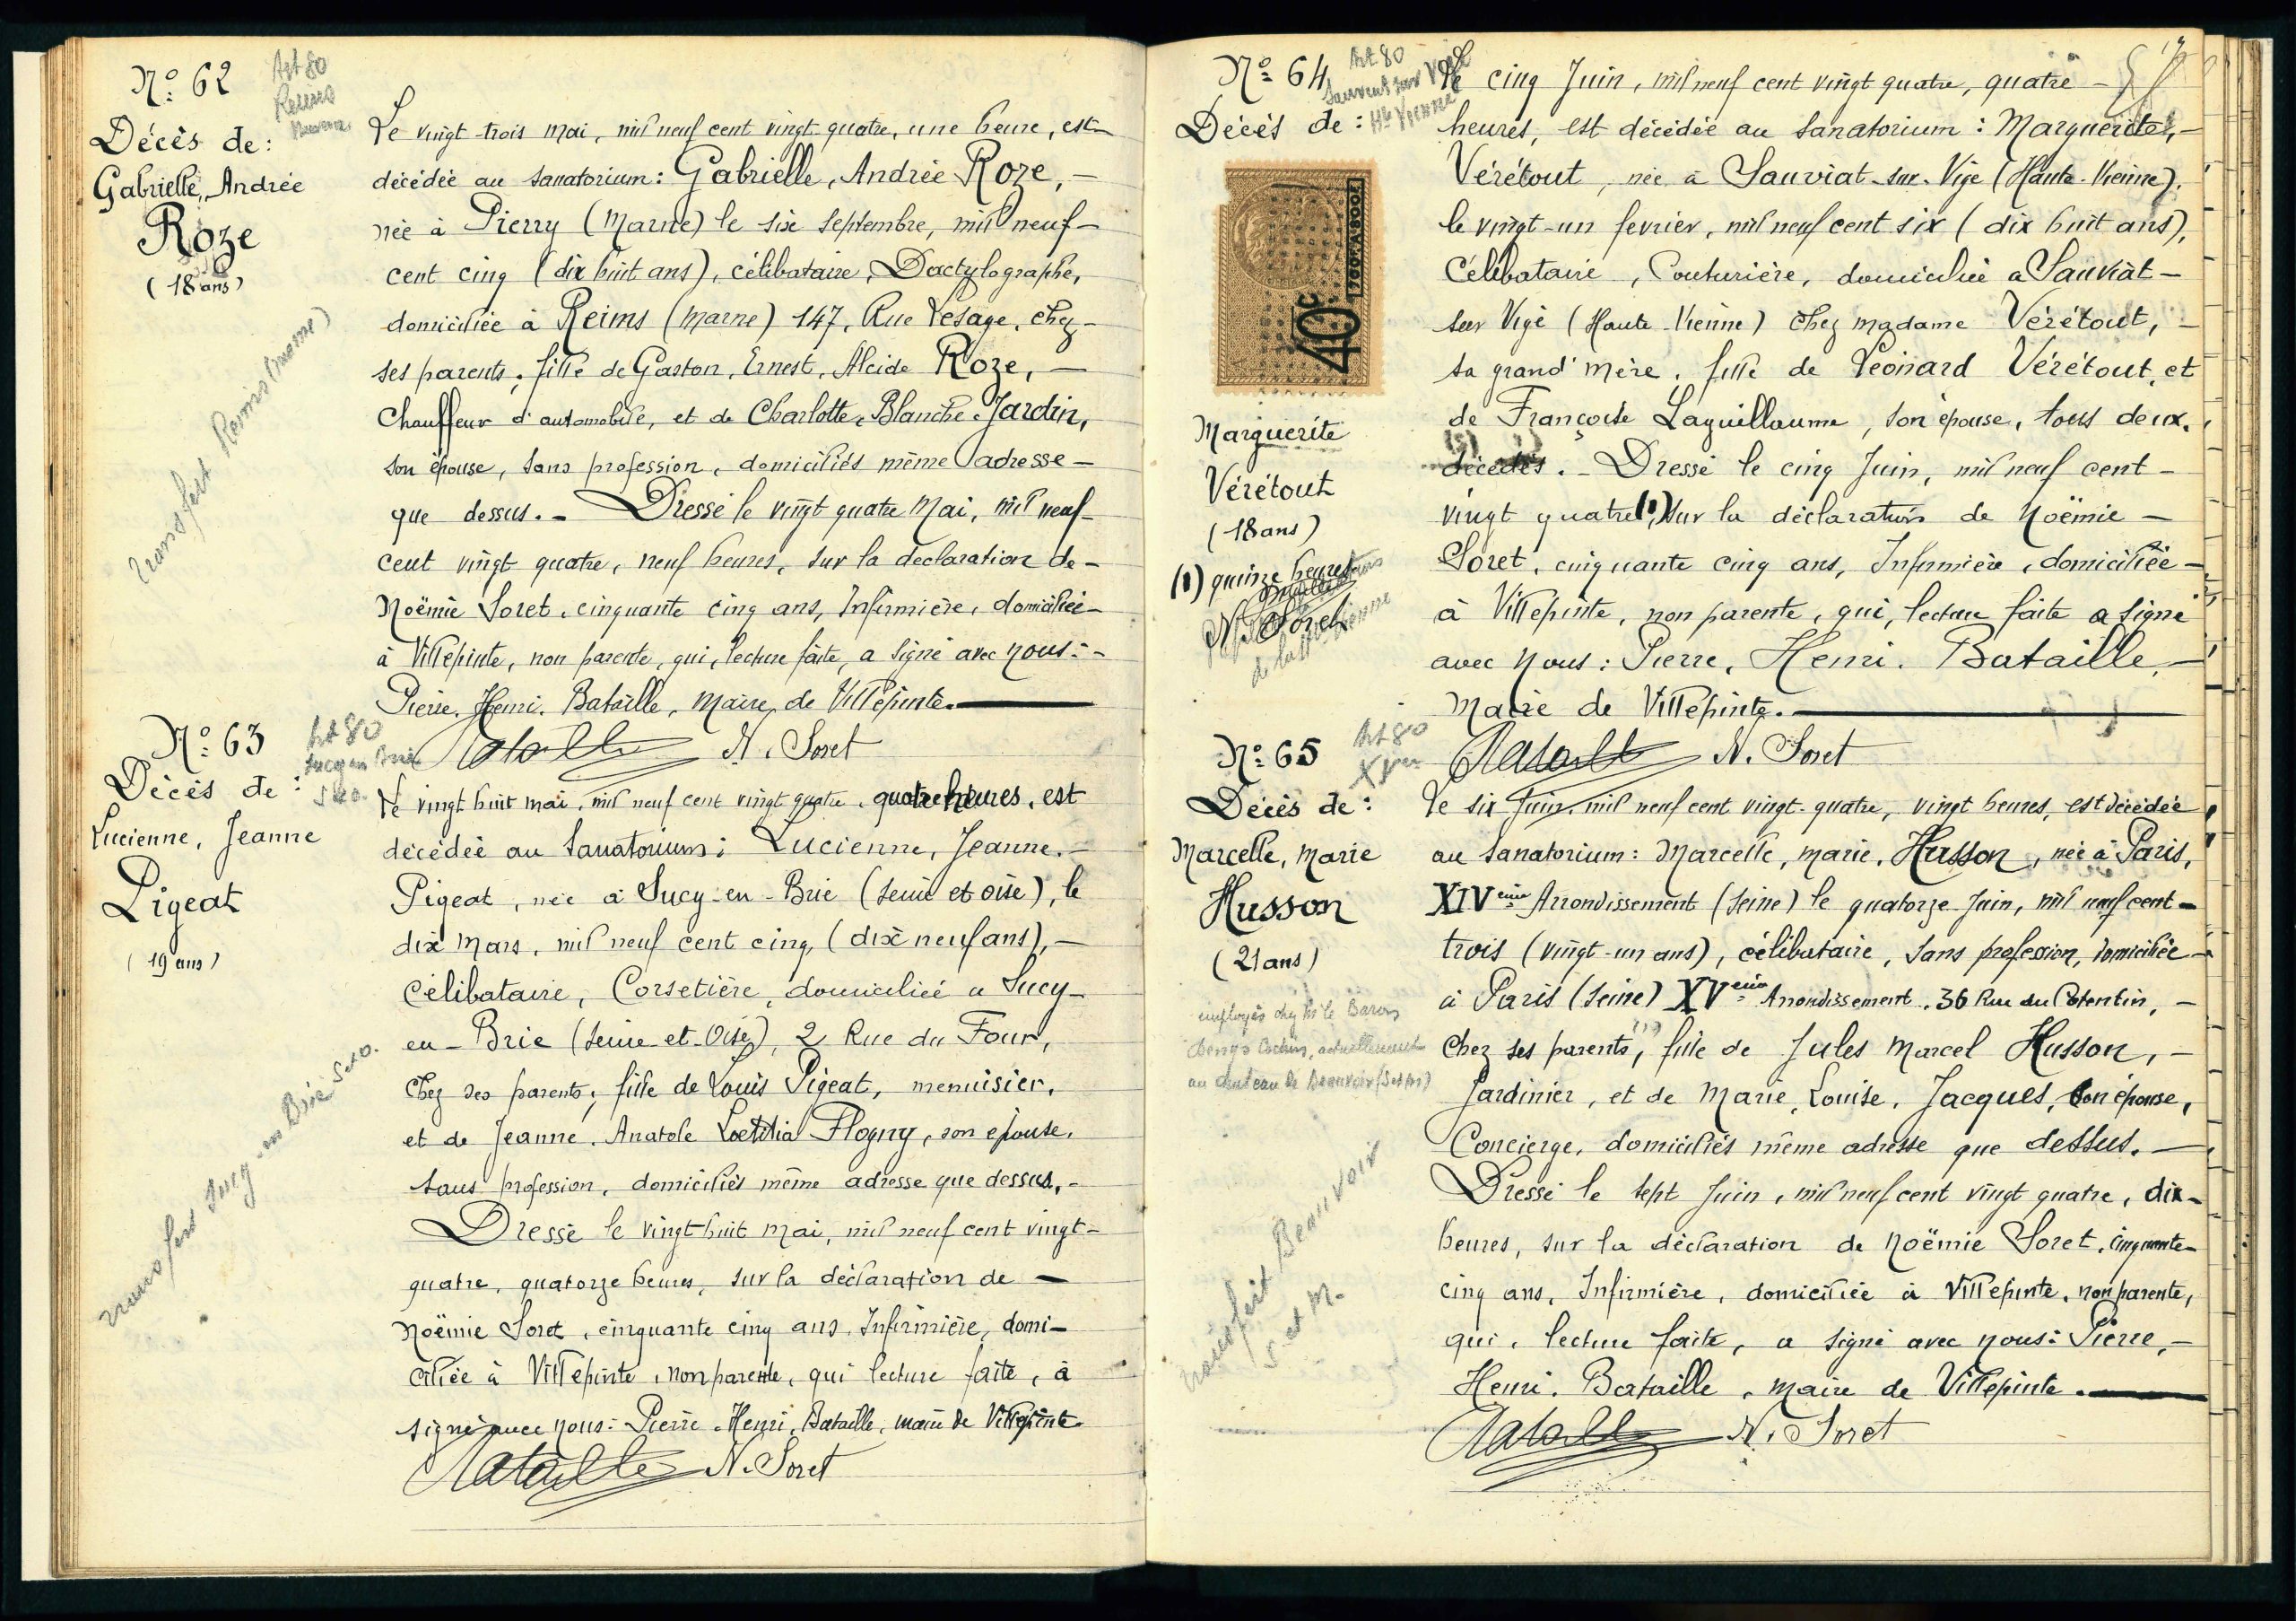 Nº 62
Art 80
Reims
Décès de :
Gabrielle, Andrée
Roze
(18 ans)
transfert Reims (marne)
Le vingt trois mai, mil neuf cent vingt quatre, une heure, est
décédée au Sanatorium : Gabrielle, Andrée Roze, —
née à Pierry (Marne) le six Septembre, mil neuf —
cent cinq (dix huit ans), célibataire, Dactylographe,
domiciliée à Reims (Marne) 147, Rue Lesage, chez —
ses parents ; fille de Gaston, Ernest, Alcide Roze, —
Chauffeur d'automobile, et de Charlotte, Blanche Jardin,
son épouse, sans profession, domiciliés même adresse —
que dessus. — Dressé le vingt quatre Mai, mil neuf
cent vingt quatre, neuf heures, sur la déclaration de —
Noëmie Soret, cinquante cinq ans, Infirmière, domiciliée
à Villepinte, non parente, qui, lecture faite, a signé avec nous : —
Pierre, Henri, Bataille, Maire de Villepinte. —
Bataille N. Soret
Nº 63
Art 80
Sucy en Brie
S et O.
Décès de :
Lucienne, Jeanne
Pigeat
(19 ans)
transfert Sucy-en Brie S et O.
Le vingt huit mai, mil neuf cent vingt quatre, quatre heures, est
décédée au Sanatorium : Lucienne, Jeanne. —
Pigeat, née à Sucy-en-Brie (Seine et Oise), le
dix Mars, mil neuf cent cinq, (dix neuf ans), —
Célibataire, Corsetière, domiciliée à Sucy-
en-Brie (Seine-et-Oise), 2 Rue du Four,
chez ses parents ; fille de Louis Pigeat, menuisier,
et de Jeanne, Anatole Loetitia Flogny, son épouse,
sans profession, domiciliés même adresse que dessus. —
Dressé le vingt-huit mai, mil neuf cent vingt-
quatre, quatorze heures, sur la déclaration de —
Noëmie Soret, cinquante cinq ans, Infirmière, domi-
ciliée à Villepinte, non parente, qui lecture faite, à
signé avec nous : Pierre, Henri, Bataille, maire de Villepinte
Bataille N. Soret
Nº 64
Art 80
Sauviat sur Vige
Hte Vienne
Décès de :
40c
Marguerite
Vérétout
(18 ans)
(1) quinze heures
Bataille
N. Soret
Le cinq Juin, mil neuf cent vingt quatre, quatre —
heures, est décédée au Sanatorium : Marguerite, —
Vérétout, née à Sauviat-sur-Vige (Haute-Vienne),
le vingt-un fevrier, mil neuf cent six (dix huit ans),
Célibataire, Couturière, domiciliée à Sauviat —
sur Vige (Haute-Vienne) chez madame Vérétout, —
sa grand'mère, fille de Léonard Vérétout, et
de Françoise Laguillaume, son épouse, tous deux
décédés. — Dressé le cinq Juin, mil neuf cent —
vingt quatre (1) sur la déclaration de Noëmie —
Soret, cinquante cinq ans, Infirmière, domiciliée —
à Villepinte, non parente, qui, lecture faite a signé
avec nous : Pierre, Henri, Bataille, —
Maire de Villepinte. —
Bataille N. Soret
Nº 65
Art 80
XVme
Décès de :
Marcelle, Marie
Husson
(21 ans)
employés chez Mr le Baron
Denys Cochin, actuellement
au chateau de Beauvoir (S et M)
transfert Beauvoir
S. et M.
Le six Juin, mil neuf cent vingt-quatre, vingt heures, est décédée
au Sanatorium : Marcelle, Marie, Husson, née à Paris,
XIVeme Arrondissement (Seine) le quatorze Juin, mil neuf cent —
trois (vingt-un ans), célibataire, sans profession, domiciliée —
à Paris (Seine) XVeme Arrondissement, 36 Rue du Cotentin, —
chez ses parents ; fille de Jules Marcel Husson, —
Jardinier, et de Marie, Louise, Jacques, son épouse,
Concierge, domiciliés même adresse que dessus. —
Dressé le sept Juin, mil neuf cent vingt quatre, dix —
heures, sur la déclaration de Noëmie Soret, cinquante —
cinq ans, Infirmière, domiciliée à Villepinte, non parente,
qui, lecture faite, a signé avec nous : Pierre, —
Henri, Bataille, Maire de Villepinte. —
Bataille N. Soret